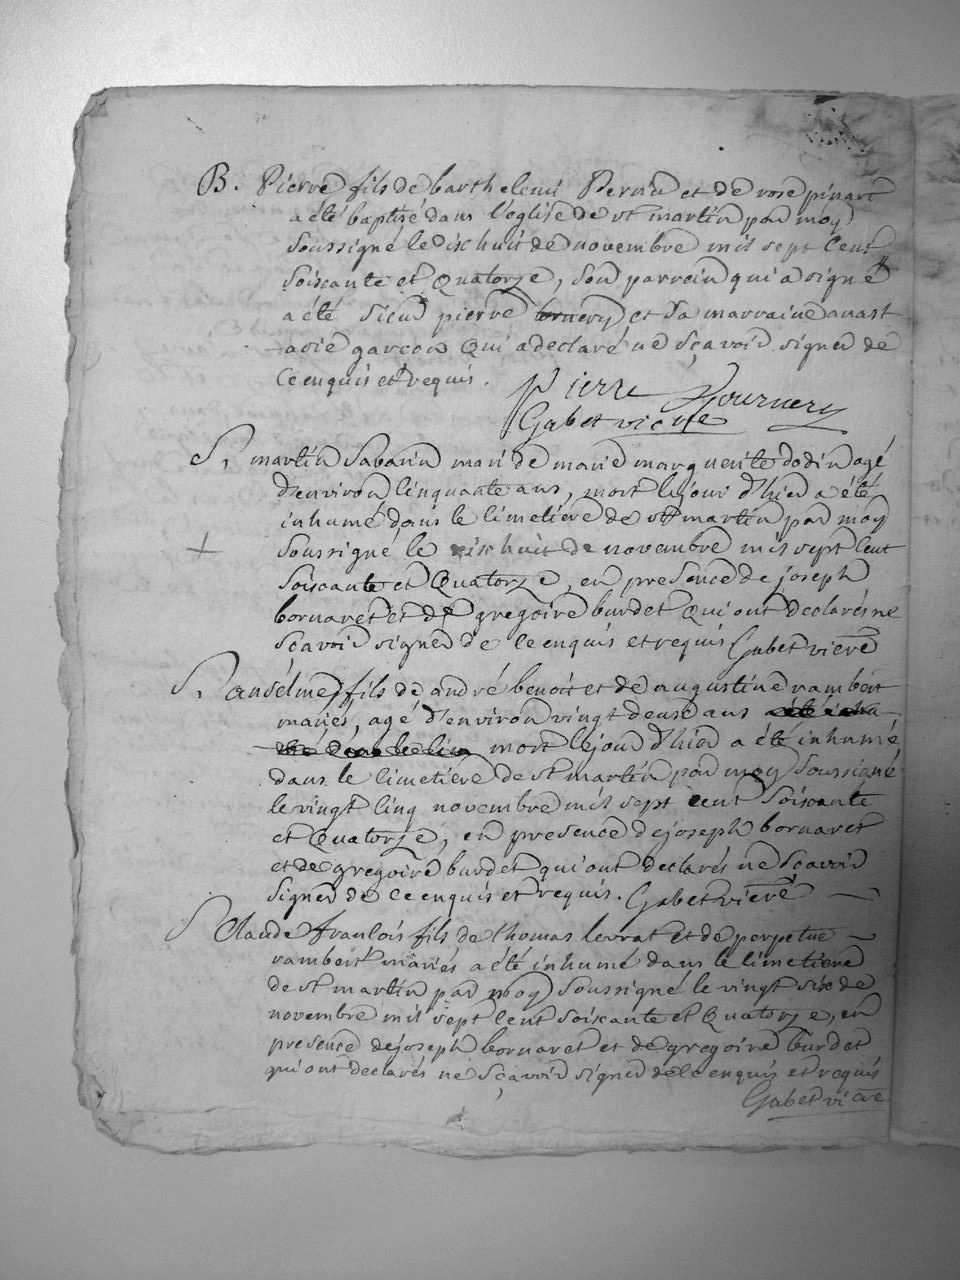 B. Pierre fils de barthelemi Pernin et de rose pinart
a été baptisé dans l'eglise de st martin par moy
soussigné le dix huit de novembre mil sept cent
soixante et Quatorze, son parrain qui a signé
a été sieur pierre et sa marraine anast
asie garçon Qui a declaré ne sçavoir signer de
ce enquis et requis.
Pierre Fournery
Gabet vicre
S, martin Savarin mari de marie marguerite dodin agé
d'environ cinquante ans, mort le jour d'hier a été
inhumé dans le cimetiere de st martin par moy
soussigné le dix huit de novembre mil sept cent
soixante et Quatorze, en presence de joseph
bornaret et de gregoire burdet Qui ont declarés ne
sçavoir signer de ce enquis et requis Gabet vicre
S, ansélme fils de andré benoit et de augustine rambert
mariés, agé d'environ vingt deux ans
mort le jour d'hier a été inhumé
dans le cimetiere de st martin par moy soussigné
le vingt cinq novembre mil sept cent soixante
et Quatorze, en presence de joseph bornaret
et de gregoire burdet qui ont declarés ne sçavoir
signer de ce enquis et requis. Gabet vicre
S Claude francois fils de thomas levrat et de perpetue
rambert mariés a été inhumé dans le cimetiere
de st martin par moy soussigné le vingt six de
novembre mil sept cent soixante et Quatorze, en
presence de joseph bornaret et de gregoire burdet
qui ont declarés ne sçavoir signer de ce enquis et requis
Gabet vicre